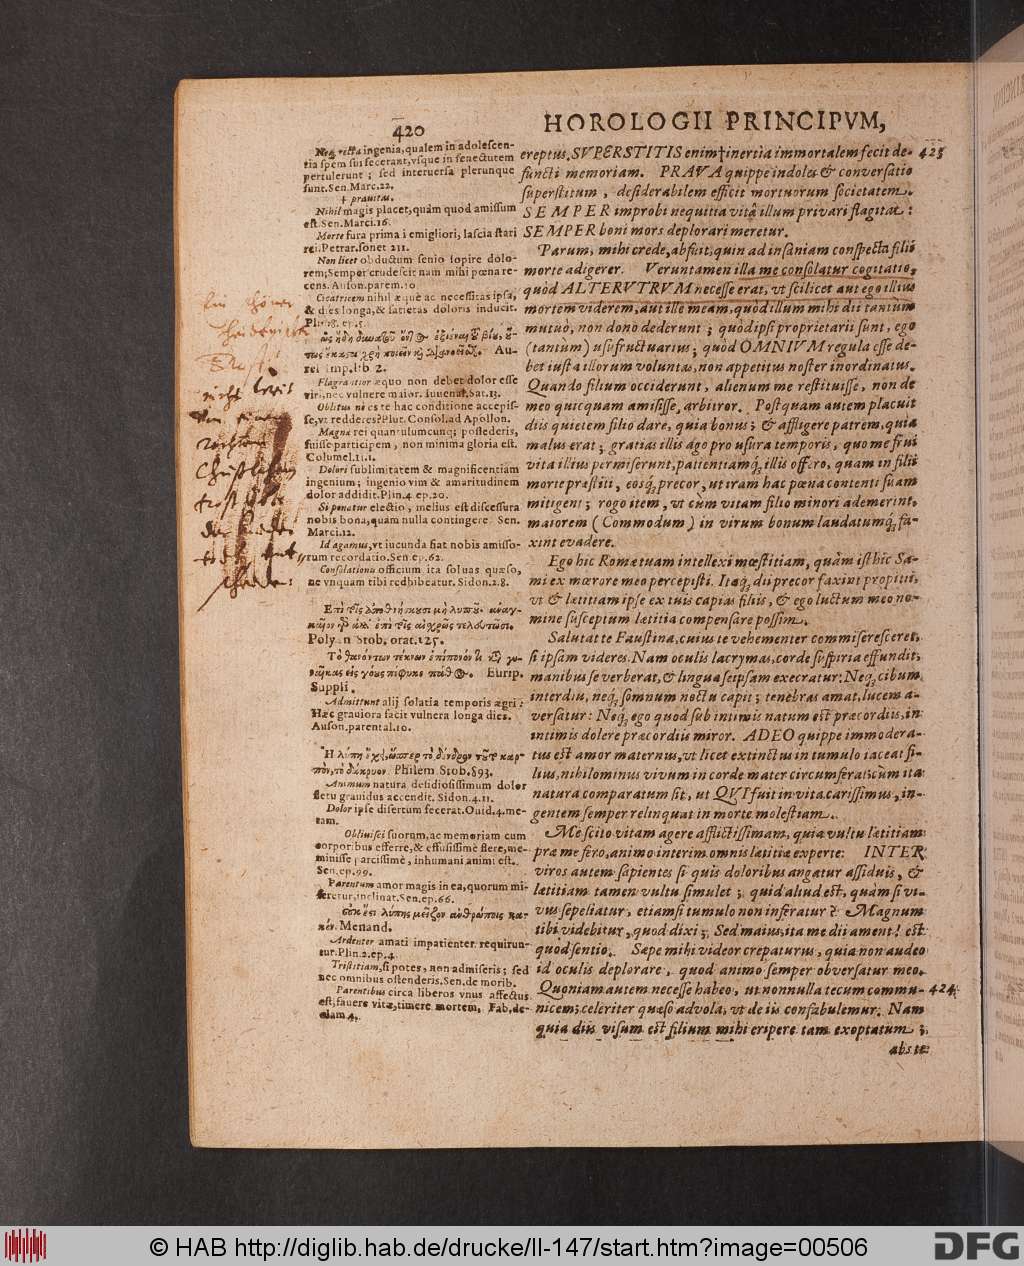 420
HOROLOGII PRINCIPVM,
ingenia, qualem in adolescen-
tia spem sui fecerant, vsque in senectutem
pertulerunt; sed interuersa plerunque
sunt. Sen. Marc. 22.
+ prauitas.
Nihil magis placet, quàm quod amissum
est. Sen. Marci. 16.
Morte fura prima i emigliori, lascia stari
rei. Petrar. sonet 211.
Non licet obductum senio sopire dolo-
rem; Semper crudescit nam mihi pœna re-
cens. Auson. parem. 10
Cicatricem nihil æquè ac necessitas ipsa,
& dies longa, & satietas doloris inducit.
Au-
rel. Imp. lib. 2.
Flagrantior æquo non debet dolor esse
viri, nec vulnere maior. Iuuenal. Sat. 13.
Oblitus ni es te hac conditione accepis-
se, vt redderes? Plut. Consol. ad Apollon.
Magna rei quantulumcunq; possederis,
fuisse participem, non minima gloria est.
Columel. 11. 1.
Dolori sublimitatem & magnificentiam
ingenium; ingenio vim & amaritudinem
dolor addidit. Plin. 4. ep. 20.
Si ponatur electio, melius est discessura
nobis bona, quam nulla contingere. Sen.
Marci. 12.
Id agamus, vt iucunda fiat nobis amisso-
rum recordatio. Sen. ep. 62.
Consolationis officium ita soluas quæso,
ne vnquam tibi redhibeatur. Sidon. 2. 8.
Stob. orat. 125.
Eurip.
Suppli.
Admittunt alij solatia temporis ægri:
Hæc grauiora facit vulnera longa dies.
Auson. parental. 10.
Philem. Stob. §93.
Animum natura desidiosissimum dolor
fletu grauidus accendit. Sidon. 4. 11.
Dolor ipse disertum fecerat. Ouid. 4. me-
tam.
Obliuisci suorum, ac memoriam cum
corporibus efferre, & effusissimè flere, me-
minisse parcissimè, inhumani animi est.
Sen. ep. 99.
Parentum amor magis in ea, quorum mi-
seretur, inclinat. Sen. ep. 66.
Menand.
Ardenter amati impatienter requirun-
tur. Plin. 2. ep. 4.
Tristitiam, si potes, non admiseris; sed
nec omnibus ostenderis. Sen. de morib.
Parentibus circa liberos vnus affectus
est, fauere vitæ, timere mortem. Fab. de-
clam. 4.
ereptus. SVPERSTITIS enim † inertia immortalem fecit de- 423
functi memoriam. PRAVA quippe indoles & conuersatio
superstitum, desiderabilem efficit mortuorum societatem.
SEMPER improbi nequitia vitâ illum priuari flagitat:
SEMPER boni mors deplorari meretur.
Parum, mihi crede, abfuit, quin ad insaniam conspecta filii
morte adigerer. Veruntamen illa me consolatur cogitatio,
quòd ALTERVTRVM necesse erat, vt scilicet aut ego illius
mortem viderem, aut ille meam, quòd illum mihi dii tantùm
mutuò, non dono dederunt; quòd ipsi proprietarii sunt, ego
(tantùm) vsufructuarius; quòd OMNIVM regula esse de-
bet iusta illorum voluntas, non appetitus noster inordinatus.
Quando filium occiderunt, alienum me restituisse, non de
meo quicquam amisisse, arbitror. Postquam autem placuit
diis quietem filio dare, quia bonus; & affligere patrem, quia
malus erat; gratias illis ago pro vsura temporis, quo me frui
vita illius permiserunt, patientiamq́; illis offero, quam in filii
morte præstiti, eosq́; precor, vt iram hac pœna contenti suam
mitigent; rogo item, vt cùm vitam filio minori ademerint,
maiorem (Commodum) in virum bonum laudatumq́; fa-
xint euadere.
Ego hic Romæ tuam intellexi mœstitiam, quàm isthic Sa-
mi ex mœrore meo percepisti. Itaq́; dii precor faxint propitii,
vt & lætitiam ipse ex tuis capias filiis, & ego luctum meo no-
mine susceptum lætitia compensare possim.
Salutat te Faustina, cuius te vehementer commiseresceret,
si ipsam videres. Nam oculis lacrymas, corde suspiria effundit,
manibus se verberat, & lingua seipsam execratur: Neq́; cibum
interdiu, neq́; somnum noctu capit; tenebras amat, lucem a-
versatur: Neq́; ego quod sub intimis natum est præcordiis, in
intimis dolere præcordiis miror. ADEO quippe immodera-
tus est amor maternus, vt licet extinctus in tumulo iaceat fi-
lius, nihilominus viuum in corde mater circumferat: cùm ita
natura comparatum sit, ut QVI fuit in vita carissimus, in-
gentem semper relinquat in morte molestiam.
Me scito vitam agere afflictissimam, quia vultu lætitiam
præ me fero, animo interim omnis lætitiæ experte: INTER
viros autem sapientes si quis doloribus angatur assiduis, &
lætitiam tamen vultu simulet; quid aliud est, quàm si vi-
vus sepeliatur, etiamsi tumulo non inferatur? Magnum
tibi videbitur, quod dixi; Sed maius, ita me dii ament! est
quod sentio. Sæpe mihi videor crepaturus, quia non audeo
id oculis deplorare, quod animo semper obversatur meo.
Quoniam autem necesse habeo, ut nonnulla tecum commu- 424
nicem; celeriter quæso advola, vt de iis confabulemur. Nam
quia diis visum est filium mihi eripere tam exoptatum;
abs te
© HAB http://diglib.hab.de/drucke/li-147/start.htm?image=00506
DFG